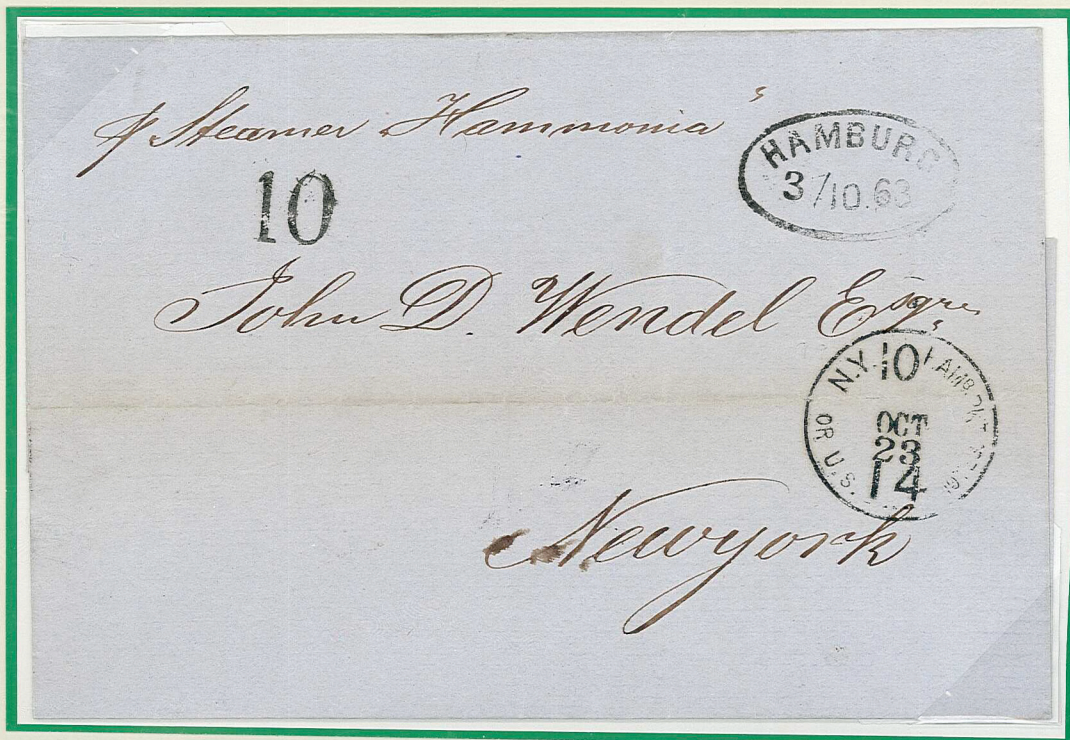 p Steamer Hammonia
HAMBURG
3/10.63
10
John D. Wendel Esqre
N.Y. 10 HAMB. PKT.
OCT
23
14
OR U.S.
Newyork